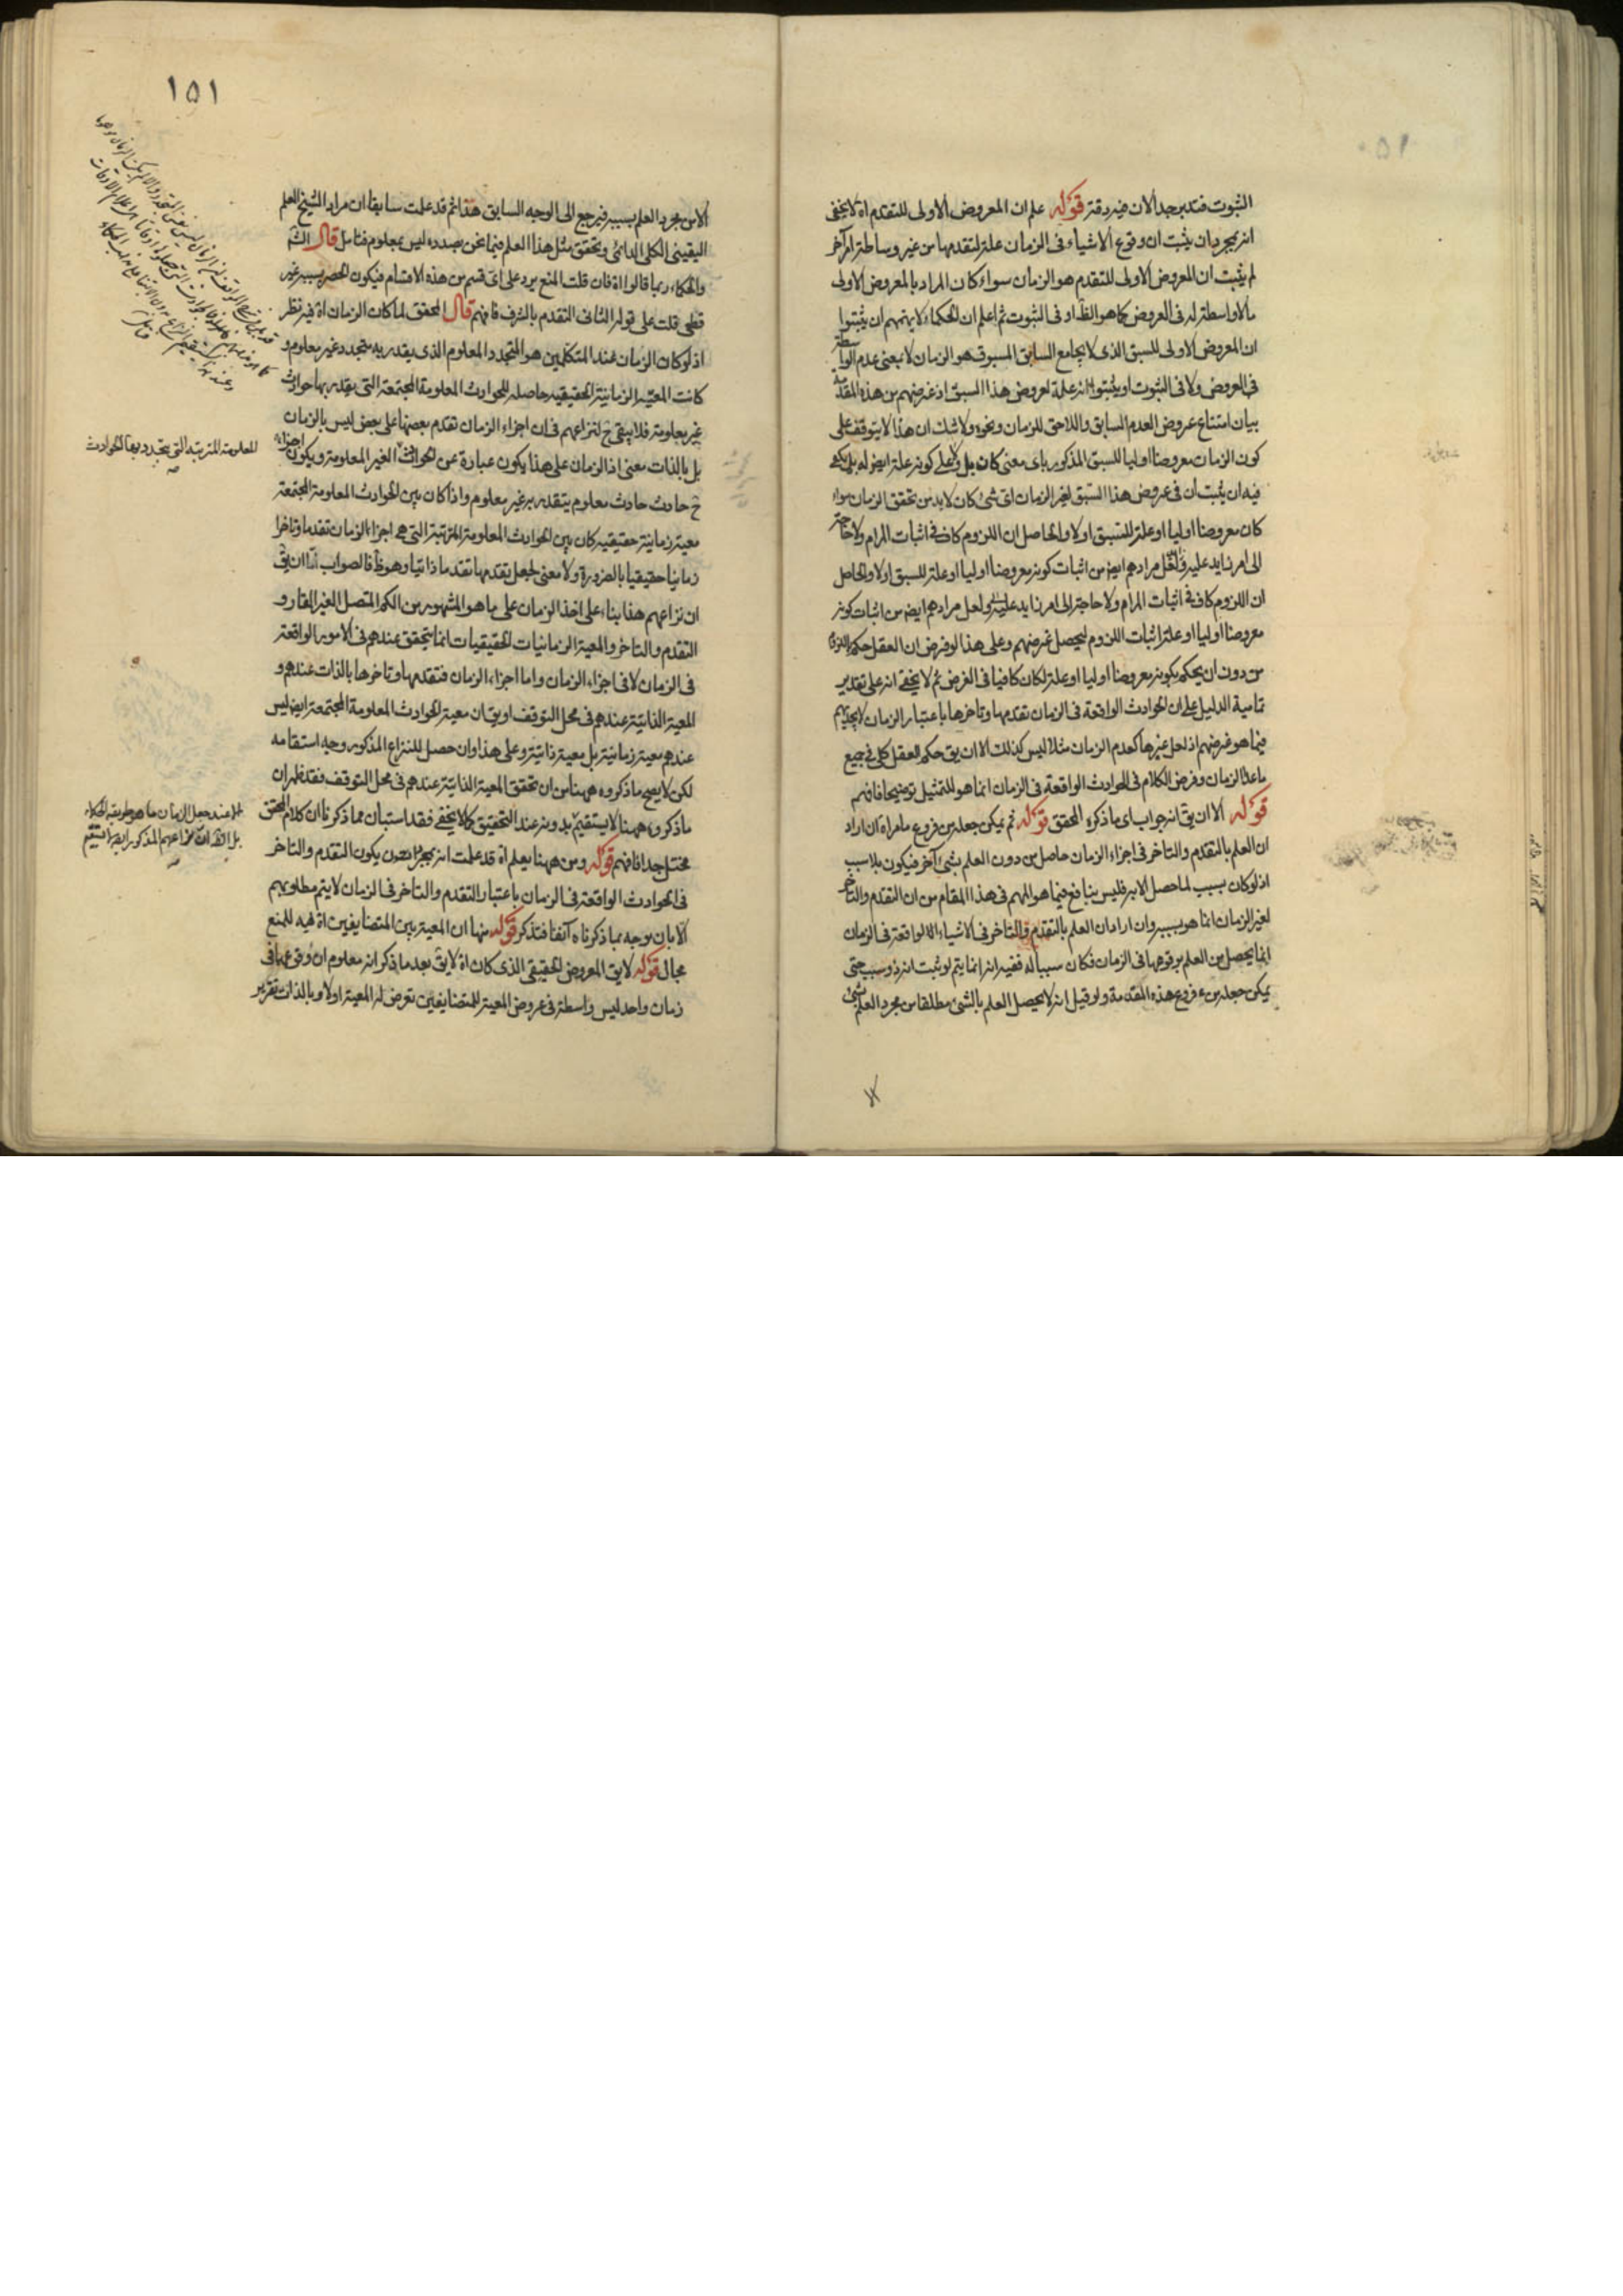 الثبوت فتدبر جدا الان فيه دقة قوله علم ان المعروض الاولى للتقدم اه لا يخفى
انه بمجرد ان يثبت ان وقوع الاشياء فى الزمان علة لتقدمها من غير وساطة امر آخر
لم يثبت ان المعروض الاولى للتقدم هو الزمان سواء كان المراد بالمعروض الاولى
ما لا واسطة له فى العروض كما هو الظ او فى الثبوت ثم اعلم ان الحكماء لا يهمهم ان يثبتوا
ان المعروض الاولى للسبق الذى لا يجامع السابق المسبوق هو الزمان لا بمعنى عدم الواسطة
فى العروض ولا فى الثبوت او يثبتوا انه علة لعروض هذا السبق اذ غرضهم من هذه المقدمة
بيان امتناع عروض العدم السابق واللاحق للزمان ونحوه ولا شك ان هذا لا يتوقف على
كون الزمان معروضا اوليا للسبق المذكور باى معنى كان بل ولا على كونه علة ايض له بل يكفى
فيه ان يثبت ان فى عروض هذا السبق لغير الزمان اى شئ كان لا بد من تحقق الزمان سواء
كان معروضا اوليا او علة للسبق اولا والحاصل ان اللزوم كاف فى اثبات المرام ولا حاجة
الى امر زايد عليه ولعل مرادهم ايض من اثبات كونه معروضا اوليا او علة للسبق اولا والحاصل
ان اللزوم كاف فى اثبات المرام ولا حاجة الى امر زايد عليه ولعل مرادهم ايض من اثبات كونه
معروضا اوليا او علة اثبات اللزوم ليحصل غرضهم وعلى هذا لو فرض ان العقل حكم باللزوم
من دون ان يحكم بكونه معروضا اوليا او علة لكان كافيا فى الغرض ثم لا يخفى انه على تقدير
تمامية الدليل على ان الحوادث الواقعة فى الزمان تقدمها وتاخرها باعتبار الزمان لا يجديهم
فيما هو غرضهم اذ لعل غيرها كعدم الزمان مثلا ليس كذلك الا ان يق حكم العقل كلى فى جميع
ما عدا الزمان وفرض الكلام فى الحوادث الواقعة فى الزمان انما هو للتمثيل توضيحا فافهم
قوله الا ان يق انه جواب اى ما ذكره المحقق قوله ثم يمكن جعله من فروع ما مر اه ان اراد
ان العلم بالتقدم والتاخر فى اجزاء الزمان حاصل من دون العلم بشئ آخر فيكون بلا سبب
اذ لو كان بسبب لما حصل الا به فليس بنافع فيما هو المهم فى هذا المقام من ان التقدم والتاخر
لغير الزمان انما هو بسببه وان اراد ان العلم بالتقدم والتاخر فى الاشياء الواقعة فى الزمان
انما يحصل من العلم بوقوعها فى الزمان فكان سببا له ففيه انه انما يتم لو ثبت انه ذو سبب حتى
يمكن جعله من فروع هذه المقدمة ولو قيل انه لا يحصل العلم بالشئ مطلقا من مجرد العلم بشئ
١٥١
الا من مجرد العلم بسببه فيرجع الى الوجه السابق هذا ثم قد علمت سابقا ان مراد الشيخ العلم
اليقينى الكلى الدائمى وتحقق مثل هذا العلم فيما نحن بصدده ليس بمعلوم فتامل قال الش
والحكماء ربما قالوا اه فان قلت المنع يرد على اى قسم من هذه الاقسام فيكون الحصر بسببه غير
قطعى قلت على قوله الثانى التقدم بالشرف فافهم قال المحقق لما كان الزمان اه فيه نظر
اذ لو كان الزمان عند المتكلمين هو المتجدد المعلوم الذى يقدر به متجدد غير معلوم و
كانت المعية الزمانية الحقيقيه حاصله للحوادث المعلومة المجتمعة التى يقدر بها حوادث
غير معلومة فلا يبقى ح لنزاعهم فى ان اجزاء الزمان تقدم بعضها على بعض ليس بالزمان
بل بالذات معنى اذ الزمان على هذا يكون عبارة عن الحوادث الغير المعلومة ويكون اجزائه
ح حادث حادث معلوم يتقدر به غير معلوم واذا كان بين الحوادث المعلومة المجتمعة
معية زمانية حقيقيه كان بين الحوادث المعلومة المترتبة التى هى اجزاء الزمان تقدما وتاخرا
زمانيا حقيقيا بالضرورة ولا معنى لجعل تقدمها تقدما ذاتيا وهو ظ فالصواب اما ان يق
ان نزاعهم هذا بناء على اخذ الزمان على ما هو المشهور من الكم المتصل الغير القار و
التقدم والتاخر والمعية الزمانيات الحقيقيات انما يتحقق عندهم فى الامور الواقعة
فى الزمان لا فى اجزاء الزمان واما اجزاء الزمان فتقدمها وتاخرها بالذات عندهم و
المعية الذاتية عندهم فى محل التوقف او يق ان معية الحوادث المعلومة المجتمعة ايض ليس
عندهم معية زمانية بل معية ذاتية وعلى هذا وان حصل للنزاع المذكور وجه استقامه
لكن لا يصح ما ذكروه ههنا من ان تحقق المعية الذاتية عندهم فى محل التوقف فقد ظهر ان
ما ذكروه ههنا لا يستقيم بدونه عند التحقيق كما لا يخفى فقد استبان مما ذكرنا ان كلام المحقق
مختل جدا فافهم قوله ومن ههنا يعلم اه قد علمت انه بمجرد ان يكون التقدم والتاخر
فى الحوادث الواقعة فى الزمان باعتبار التقدم والتاخر فى الزمان لا يتم مطلوبهم
الا بان يوجه بما ذكرناه آنفا فتذكر قوله منها ان المعية بين المتضايفين اه فيه للمنع
مجال قوله لا يق المعروض الحقيقى الذى كان اه لا يق بعد ما ذكر انه معلوم ان وقوعها فى
زمان واحد ليس واسطة فى عروض المعية للمتضايفين تعرض له المعية اولا وبالذات تقرير
المعلومة المترتبة التى يتجدد بها الحوادث